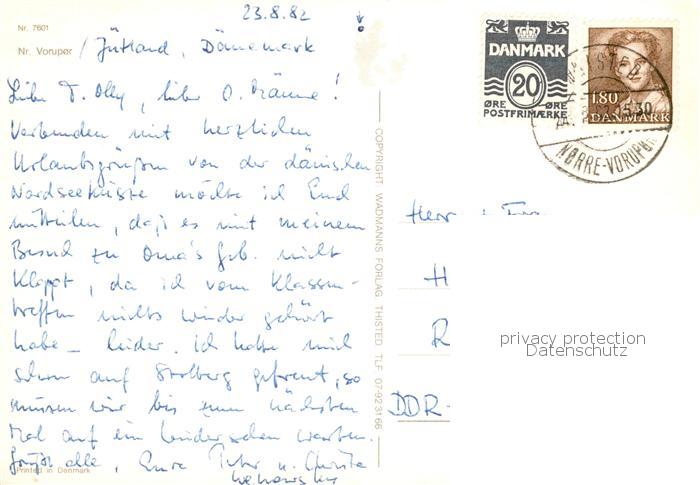 23.8.82
Nr. 7601
Nr. Vorupør / Jütland, Dänemark
Liebe T. Olly, lieber O.
Verbunden mit herzlichen
Urlaubsgrüßen von der dänischen
Nordseeküste möchte ich Euch
mitteilen, daß es mit meinem
Besuch zu Oma's Geb. nicht
klappt, da ich vom Klassen-
treffen nichts wieder gehört
habe – leider. Ich hatte mich
schon auf Stolberg gefreut, so
müssen wir bis zum nächsten
Mal auf ein Wiedersehen warten.
Grüßt alle, Eure Peter u. Christa
Printed in Denmark
COPYRIGHT WADMANNS FORLAG THISTED TLF 07-92 31 66
DANMARK
20
ØRE ØRE
POSTFRIMÆRKE
180
DANMARK
15.30
NØRRE-VORUPØR
Herr
H
R
DDR-
privacy protection
Datenschutz